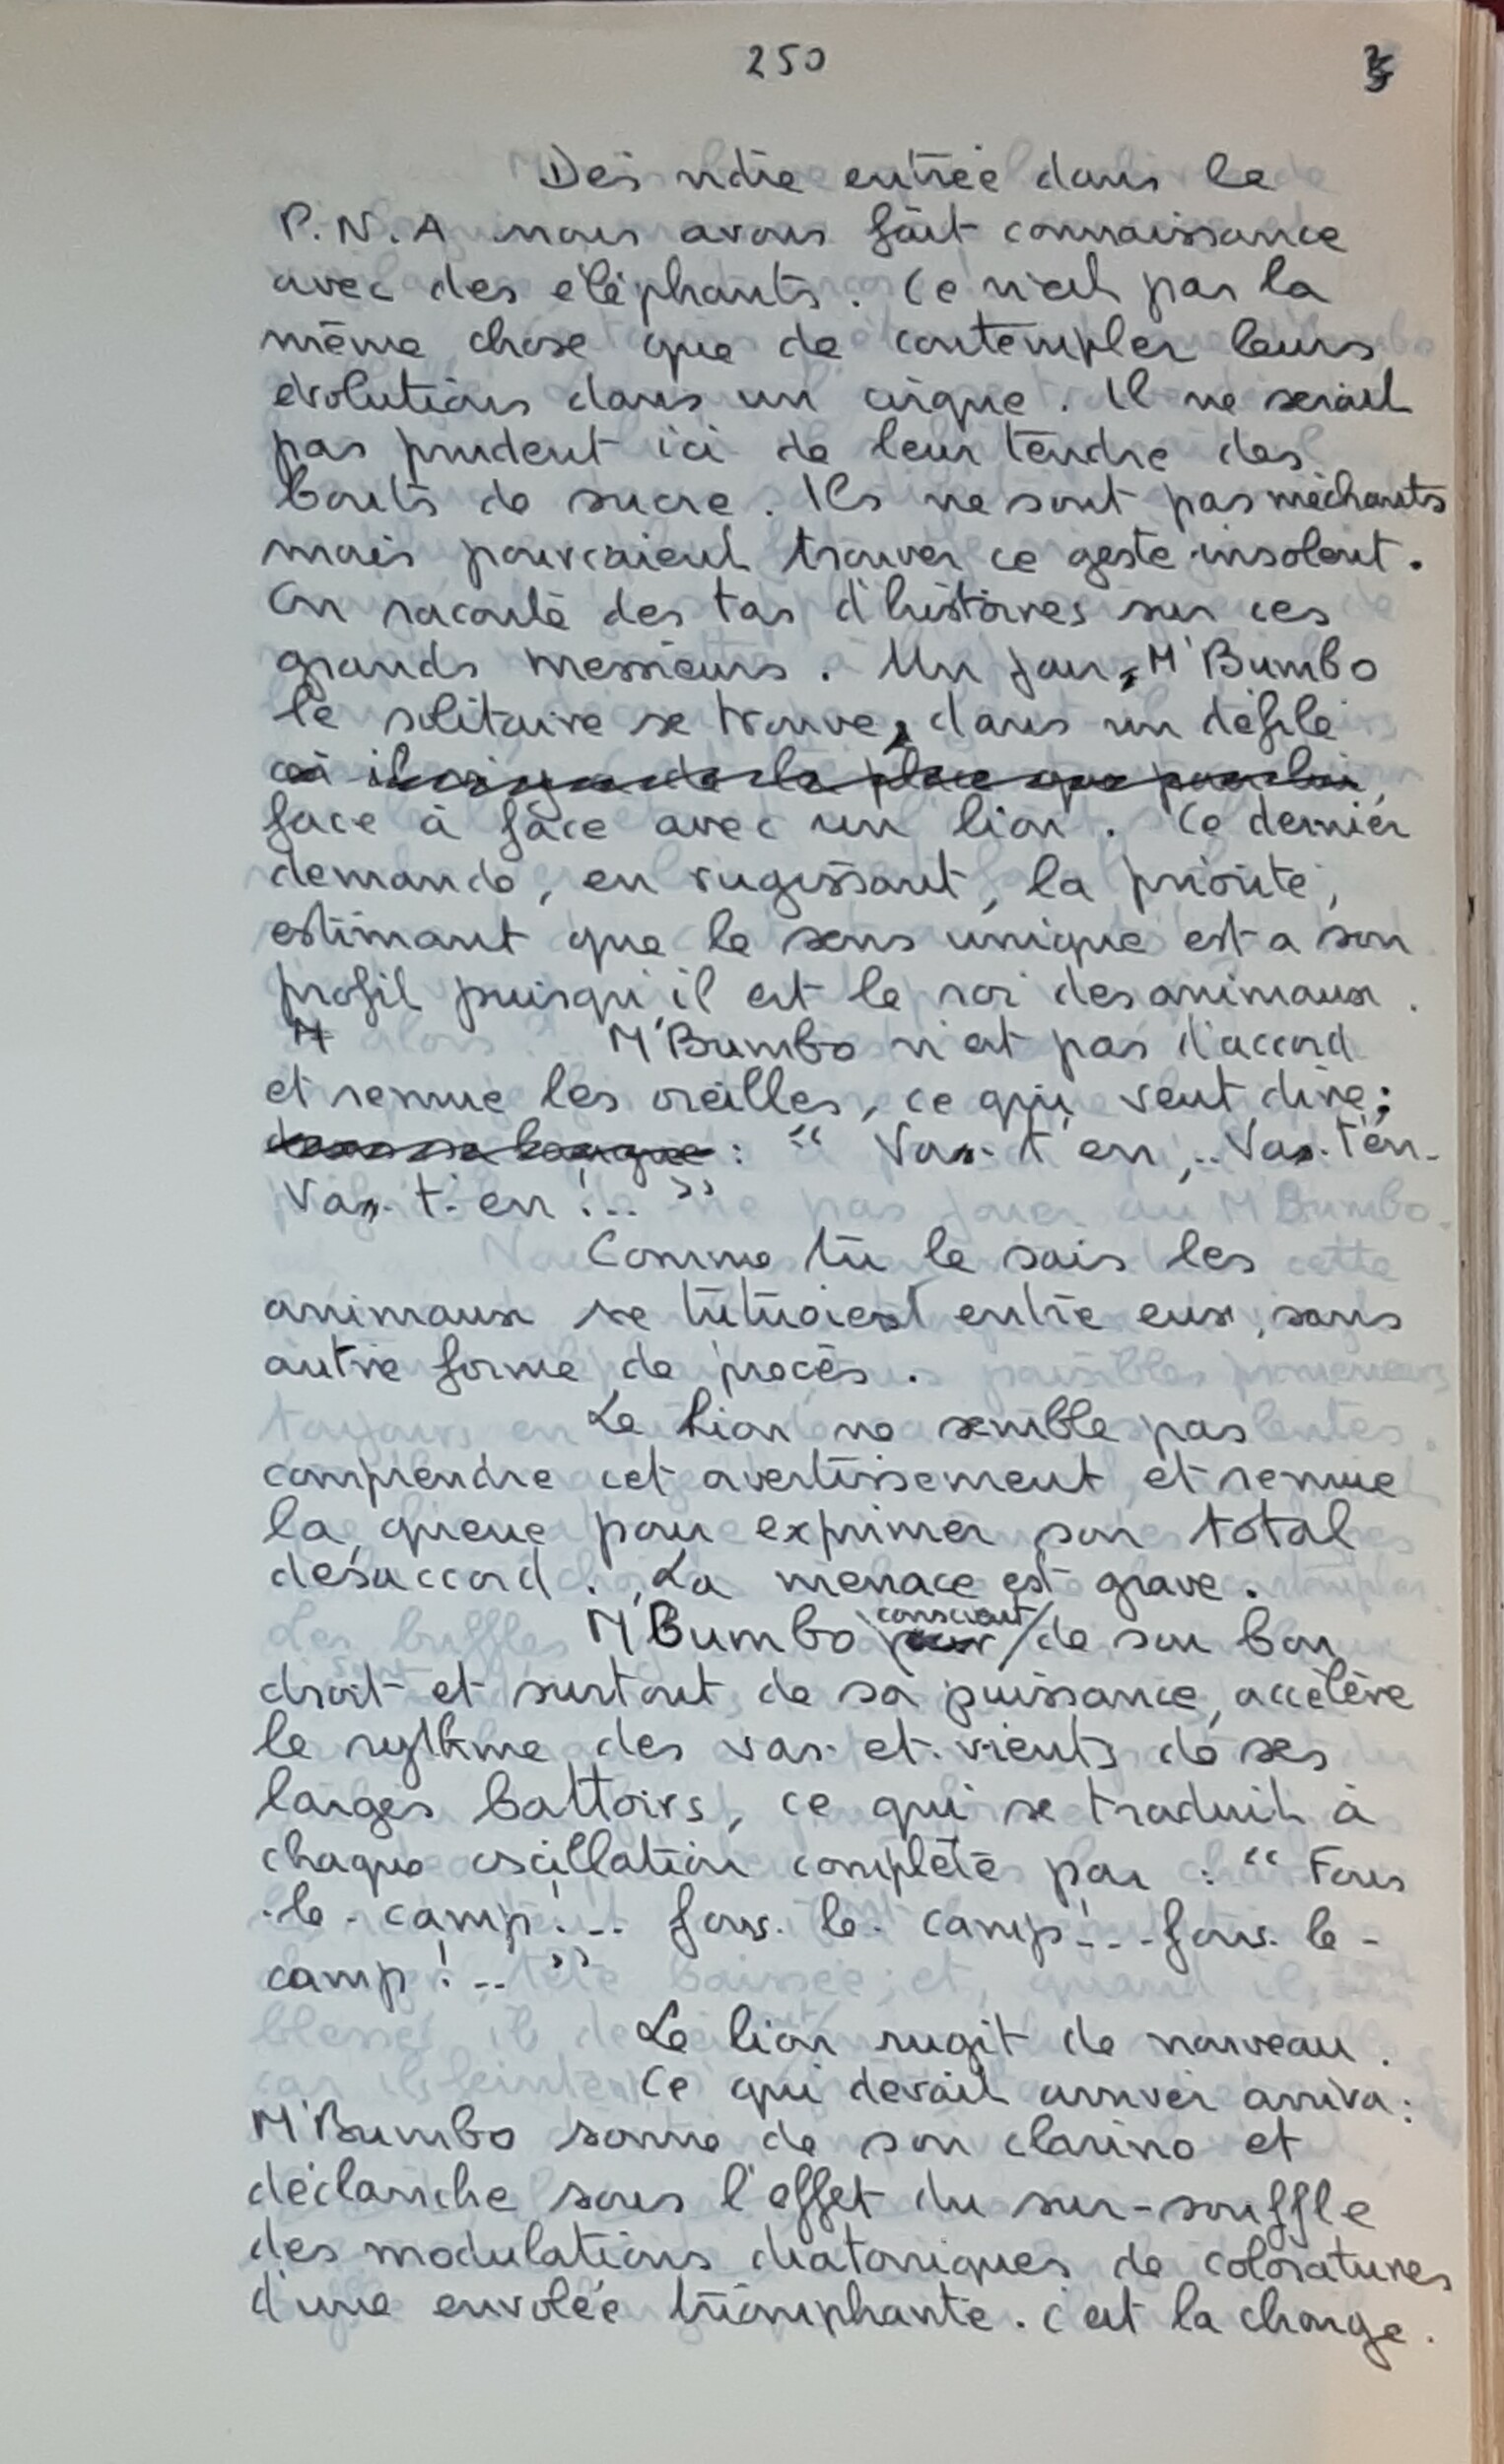 250
Dès notre entrée dans le
P.N.A nous avons fait connaissance
avec des éléphants. Ce n'est pas la
même chose que de contempler leurs
évolutions dans un cirque. Il ne serait
pas prudent ici de leur tendre des
bouts de sucre. Ils ne sont pas méchants
mais pourraient trouver ce geste insolent.
On raconte des tas d'histoires sur ces
grands messieurs. Un jour, M'Bumbo
le solitaire se trouve, dans un défilé
où il n'y a de la place que pour lui,
face à face avec un lion. Ce dernier
demande, en rugissant, la priorité,
estimant que le sens unique est a son
profit puisqu'il est le roi des animaux.
M M'Bumbo n'est pas d'accord
et remue les oreilles, ce qui veut dire:
dans sa langue : " Va-t'en,.. Va-t'en-
Va-t-en!.. "
Comme tu le sais les
animaux se tutoient entre eux, sans
autre forme de procès.
Le Lion ne semble pas
comprendre cet avertissement, et remue
la queue pour exprimer son total
désaccord. La menace est grave.
M'Bumbo conscient de son bon
droit et surtout de sa puissance, accélère
le rythme des vas-et-vients de ses
larges battoirs, ce qui se traduit à
chaque oscillation complète par : " Fous
-le-camp!... fous-le-camp!...fous-le-
camp!.. "
Le lion rugit de nouveau.
Ce qui devait arriver arriva:
M'Bumbo sonne de son clarino et
déclanche sous l'effet du sur-souffle
des modulations diatoniques de coloratures
d'une envolée triomphante. c'est la charge.